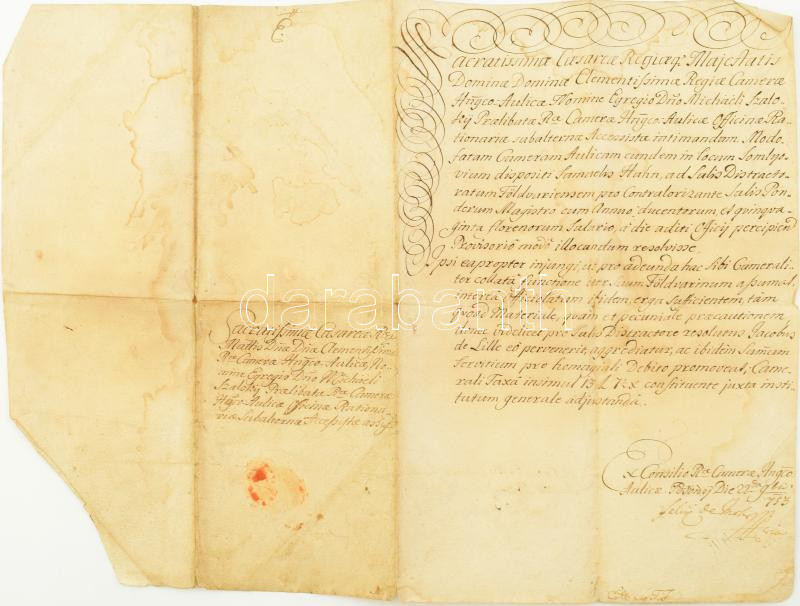 E.
Sacratissimæ Cæsareæ Regiæq. Majestatis
Dominæ Dominæ Clementissimæ Regiæ Cameræ
Hngco-Aulicæ Nomine Egregio Dno Michaeli Szalo-
kij Prælibatæ Ræ Cameræ Hngco Aulicæ Officinæ Ra-
tionariæ subalternæ Accessistæ intimandum. Modo
fatam Cameram Aulicam eundem in locum Somlyo-
vium dispositi Samuelis Hahn, ad Salis Distracto-
ratum Földvariensem pro Contralorizante Salis Pon-
derum Magistro cum Annuo, ducentorum, et quinqua-
ginta florenorum Salario, à die aditi Officij percipiend
Provisorio modo illocandum resolvisse.
Ipsi eapropter injungi, ut pro adeunda hac Sibi Camerali-
ter collata functione iter Suum Földvarinum assumat,
interea Officiolatum ibidem, erga Sufficientem, tam
quoad Materiale, quam et pecuniale præcautionem
donec videlicet pro Salis Distractore resolutus Jacobus
de Lille eo pervenerit, aggrediatur, ac ibidem Sumum
Servitium pro homagiali Debito promoveat; Came-
rali Taxa insimul 13 f. 7½ x constituente juxta insti-
tutum generale adjustanda.
Ex Consilio Ræ Cameræ Hngco
Aulicæ Posonij Die 22da 9bris
753
Sacratissimæ Cæsareæ Ræq.
Mattis Dnæ Dnæ Clementissimæ
Ræ Cameræ Hngco-Aulicæ No-
mine Egregio Dno Michaeli
Szalokij Prælibatæ Ræ Cameræ
Hngco-Aulicæ Officinæ Rationa-
riæ Subalternæ Accessistæ
darabanth.com